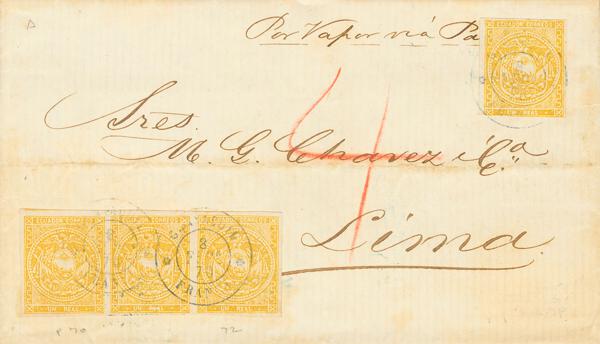 Por Vapor viá Pa
ECUADOR CORREOS
UN REAL
Sres.
M. G. Chavez i Ca.
4
Lima.
ECUADOR CORREOS ECUADOR CORREOS ECUADOR CORREOS
UN REAL UN REAL UN REAL
GUAYAQUIL
8
FRANCA
P 70 72